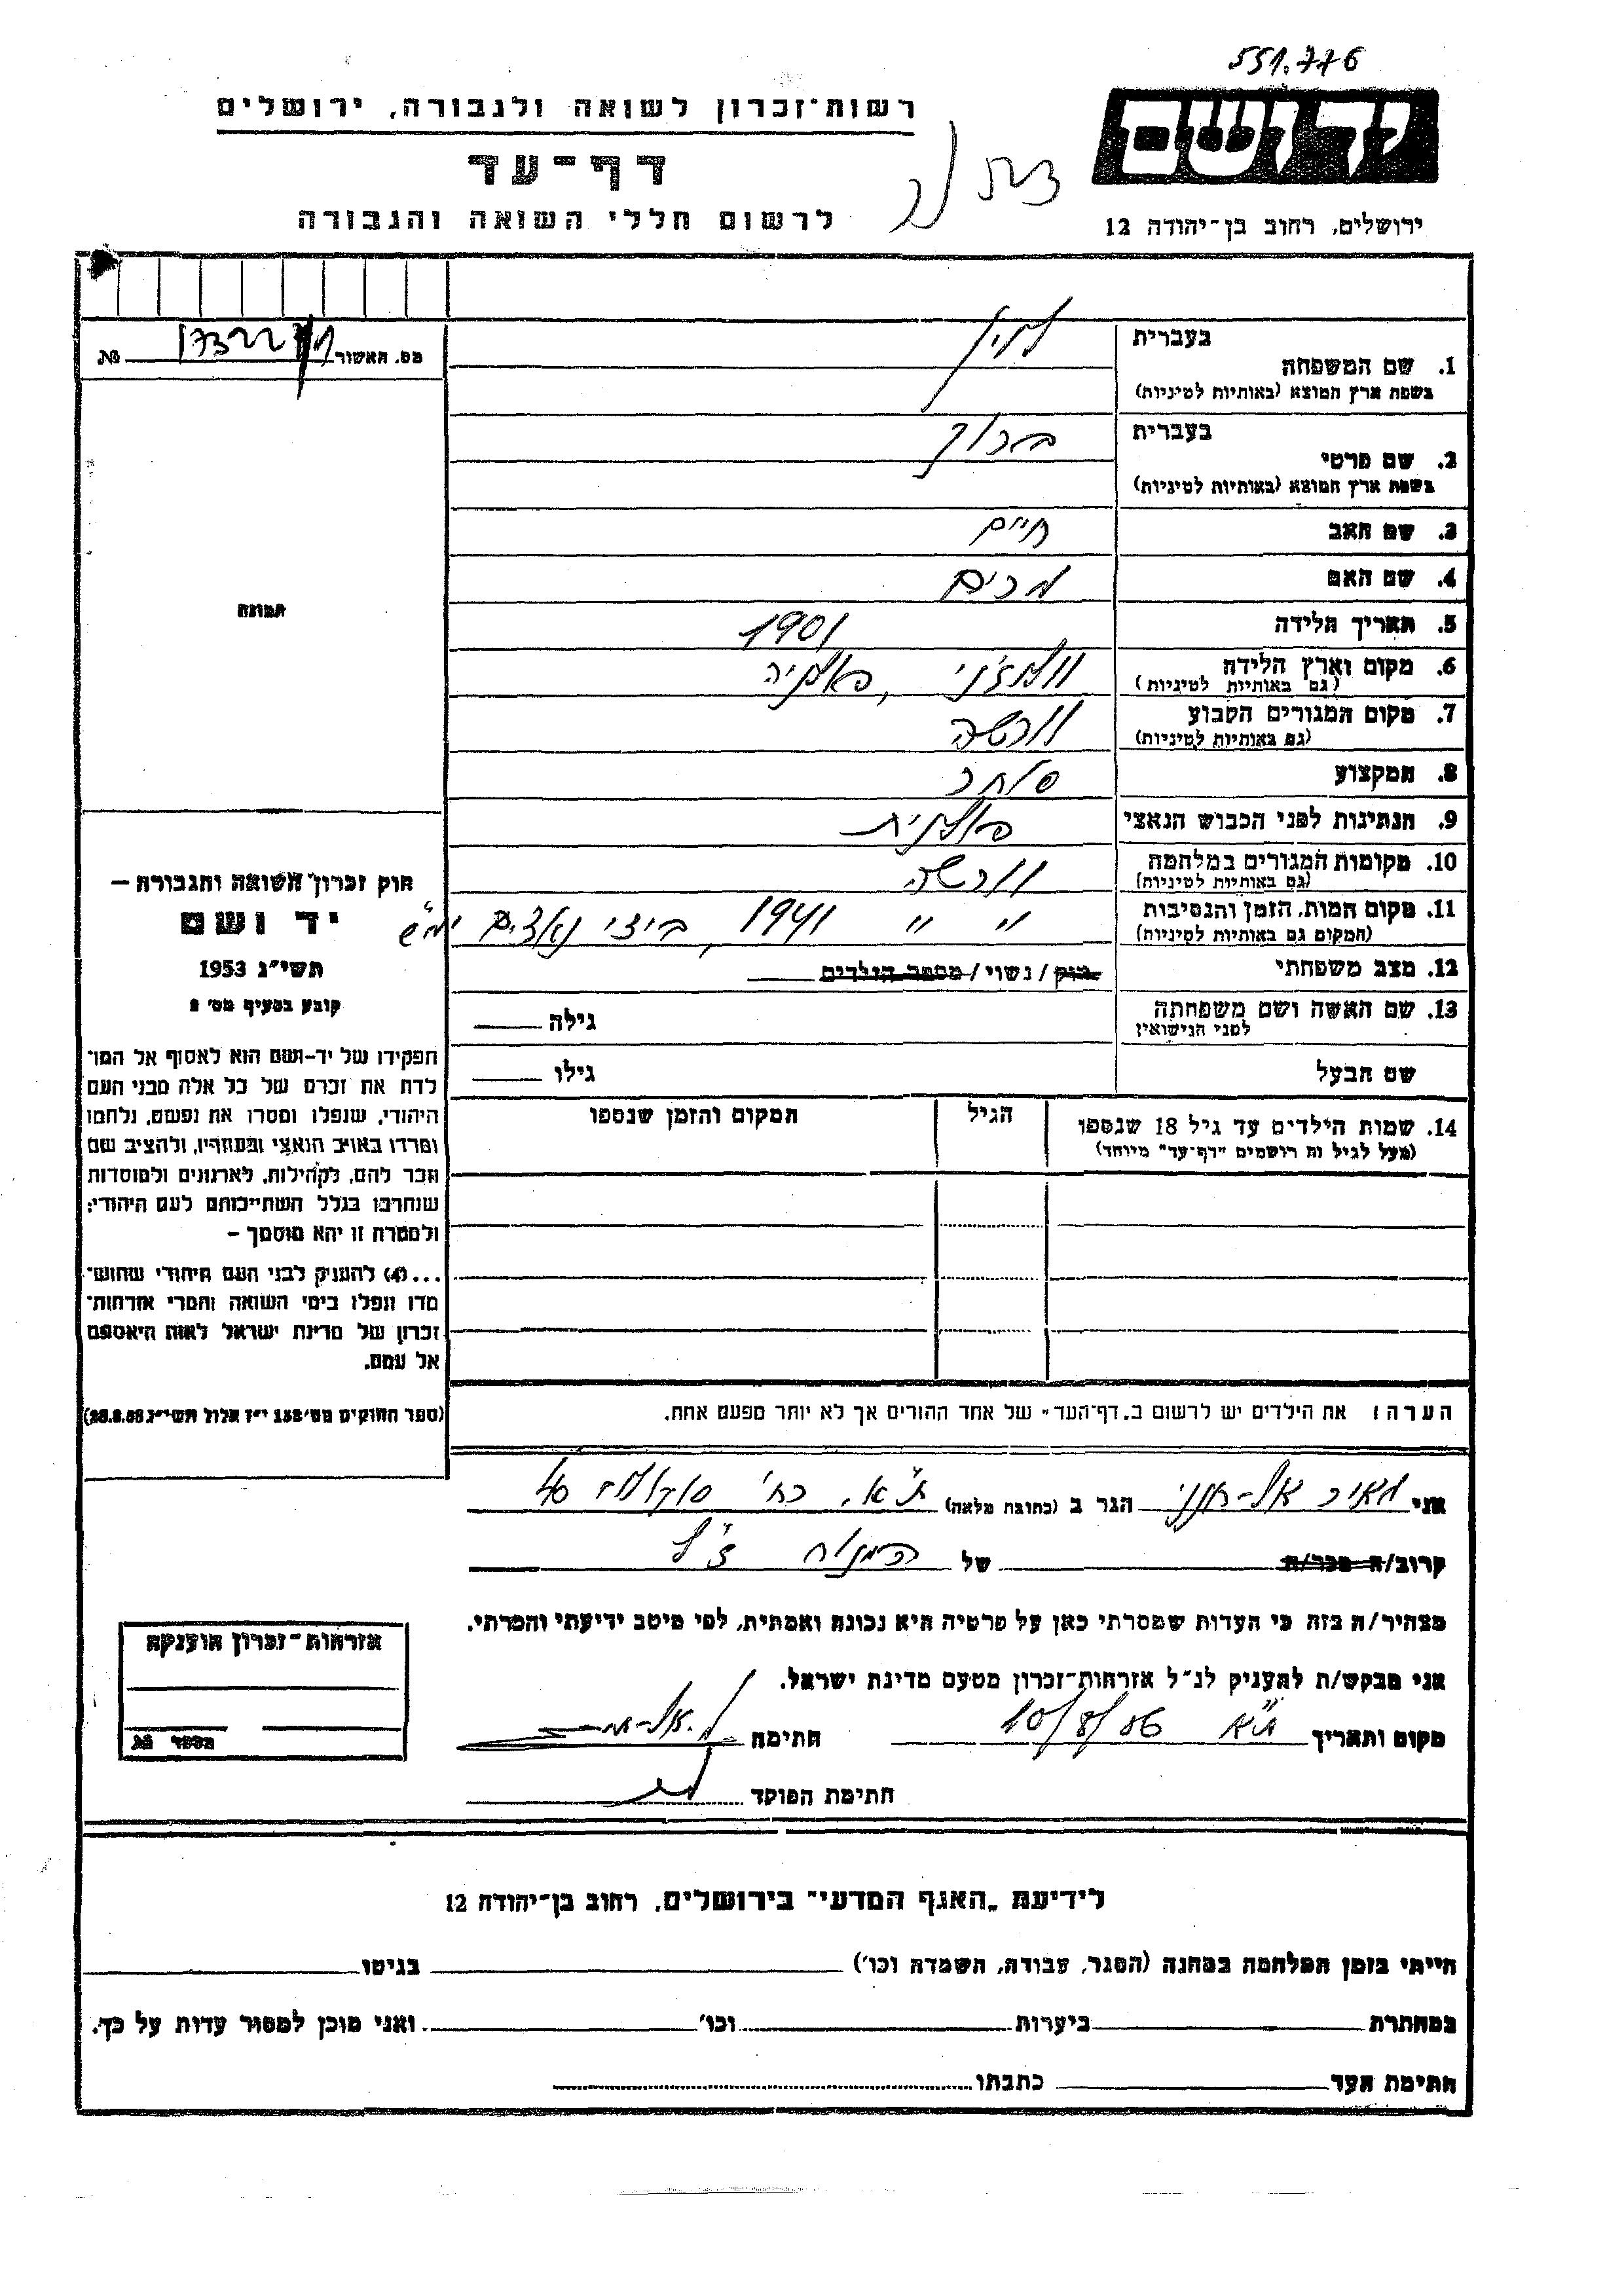 551.776
יד ושם
רשות־זכרון לשואה ולגבורה, ירושלים
דף־עד
לרשום חללי השואה והגבורה
ירושלים, רחוב בן־יהודה 12
מס. האשור № 
בעברית
1. שם המשפחה
בשפת ארץ המוצא (באותיות לטיניות)
בעברית ברוך
2. שם פרטי
בשפת ארץ המוצא (באותיות לטיניות)
3. שם האב חיים
4. שם האם מרים
5. תאריך הלידה 1901
6. מקום וארץ הלידה פולניה
(גם באותיות לטיניות)
7. מקום המגורים הקבוע וורשה
(גם באותיות לטיניות)
8. המקצוע סוחר
9. הנתינות לפני הכבוש הנאצי פולנית
10. מקומות המגורים במלחמה וורשה
(גם באותיות לטיניות)
11. מקום המות, הזמן והנסיבות " " 1941, בידי נאצים ימ"ש
(המקום גם באותיות לטיניות)
12. מצב משפחתי רווק / נשוי / מספר הילדים
13. שם האשה ושם משפחתה לפני הנישואין גילה
שם הבעל גילו
14. שמות הילדים עד גיל 18 שנספו הגיל המקום והזמן שנספו
(מעל לגיל זה רושמים "דף־עד" מיוחד)
הערה: את הילדים יש לרשום ב„דף־העד" של אחד ההורים אך לא יותר מפעם אחת.
תמונה
חוק זכרון השואה והגבורה —
יד ושם
תשי"ג 1953
קובע בסעיף מס' 2
תפקידו של יד־ושם הוא לאסוף אל המו־
לדת את זכרם של כל אלה מבני העם
היהודי, שנפלו ומסרו את נפשם, נלחמו
ומרדו באויב הנאצי ובעוזריו, ולהציב שם
וזכר להם, לקהילות, לארגונים ולמוסדות
שנחרבו בגלל השתייכותם לעם היהודי;
ולמטרה זו יהא מוסמך —
...(4) להעניק לבני העם היהודי שהוש־
מדו ונפלו בימי השואה והמרי אזרחות־
זכרון של מדינת ישראל לאות היאספם
אל עמם.
(ספר החוקים מס' 132 י"ז אלול תשי"ג 28.8.53)
אני מאיר הגר ב (כתובת מלאה) ת"א, רח' סוקולוב 40
קרוב/ה מכר/ה של המנוח ז"ל
מצהיר/ה בזה כי העדות שמסרתי כאן על פרטיה היא נכונה ואמתית, לפי מיטב ידיעתי והכרתי.
אני מבקש/ת להעניק לנ"ל אזרחות־זכרון מטעם מדינת ישראל.
מקום ותאריך ת"א 10/8/86 חתימה
חתימת הפוקד
אזרחות־זכרון הוענקה
מספר №
לידיעת „האגף המדעי" בירושלים, רחוב בן־יהודה 12
הייתי בזמן המלחמה במחנה (הסגר, עבודה, השמדה וכו') בגיטו
במחתרת ביערות וכו' ואני מוכן למסור עדות על כך.
חתימת העד כתבתו